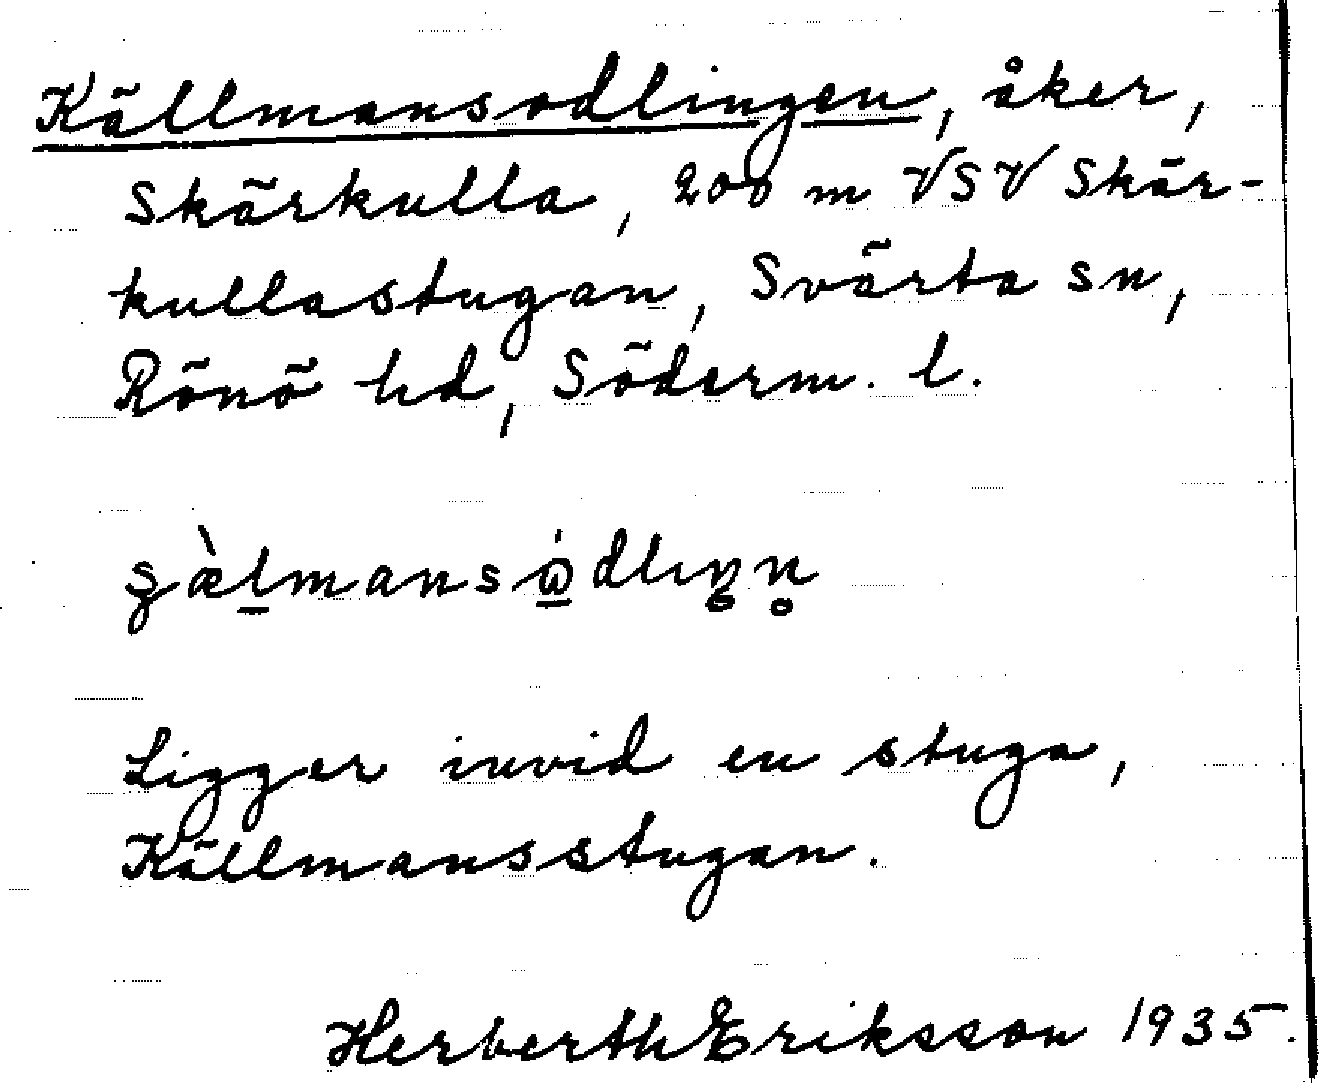 Källmansodlingen, åker,
Skärkulla, 200 m VSV Skär-
kullastugan, Svärta sn,
Rönö hd, Söderm. l.
Ligger invid en stuga,
Källmansstugan.
Herberth Eriksson 1935.